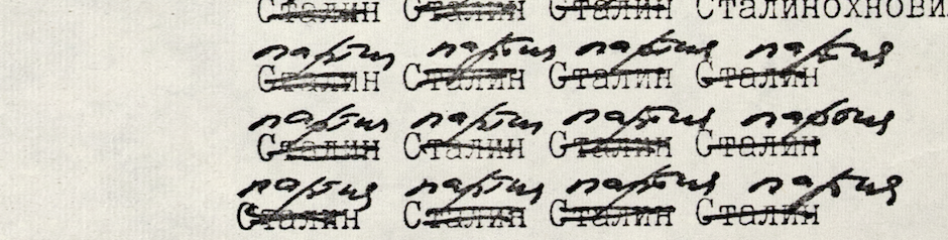 Сталин Сталин Сталин Сталинохнови
партия партия партия партия
Сталин Сталин Сталин Сталин
партия партия партия партия
Сталин Сталин Сталин Сталин
партия партия партия партия
Сталин Сталин Сталин Сталин